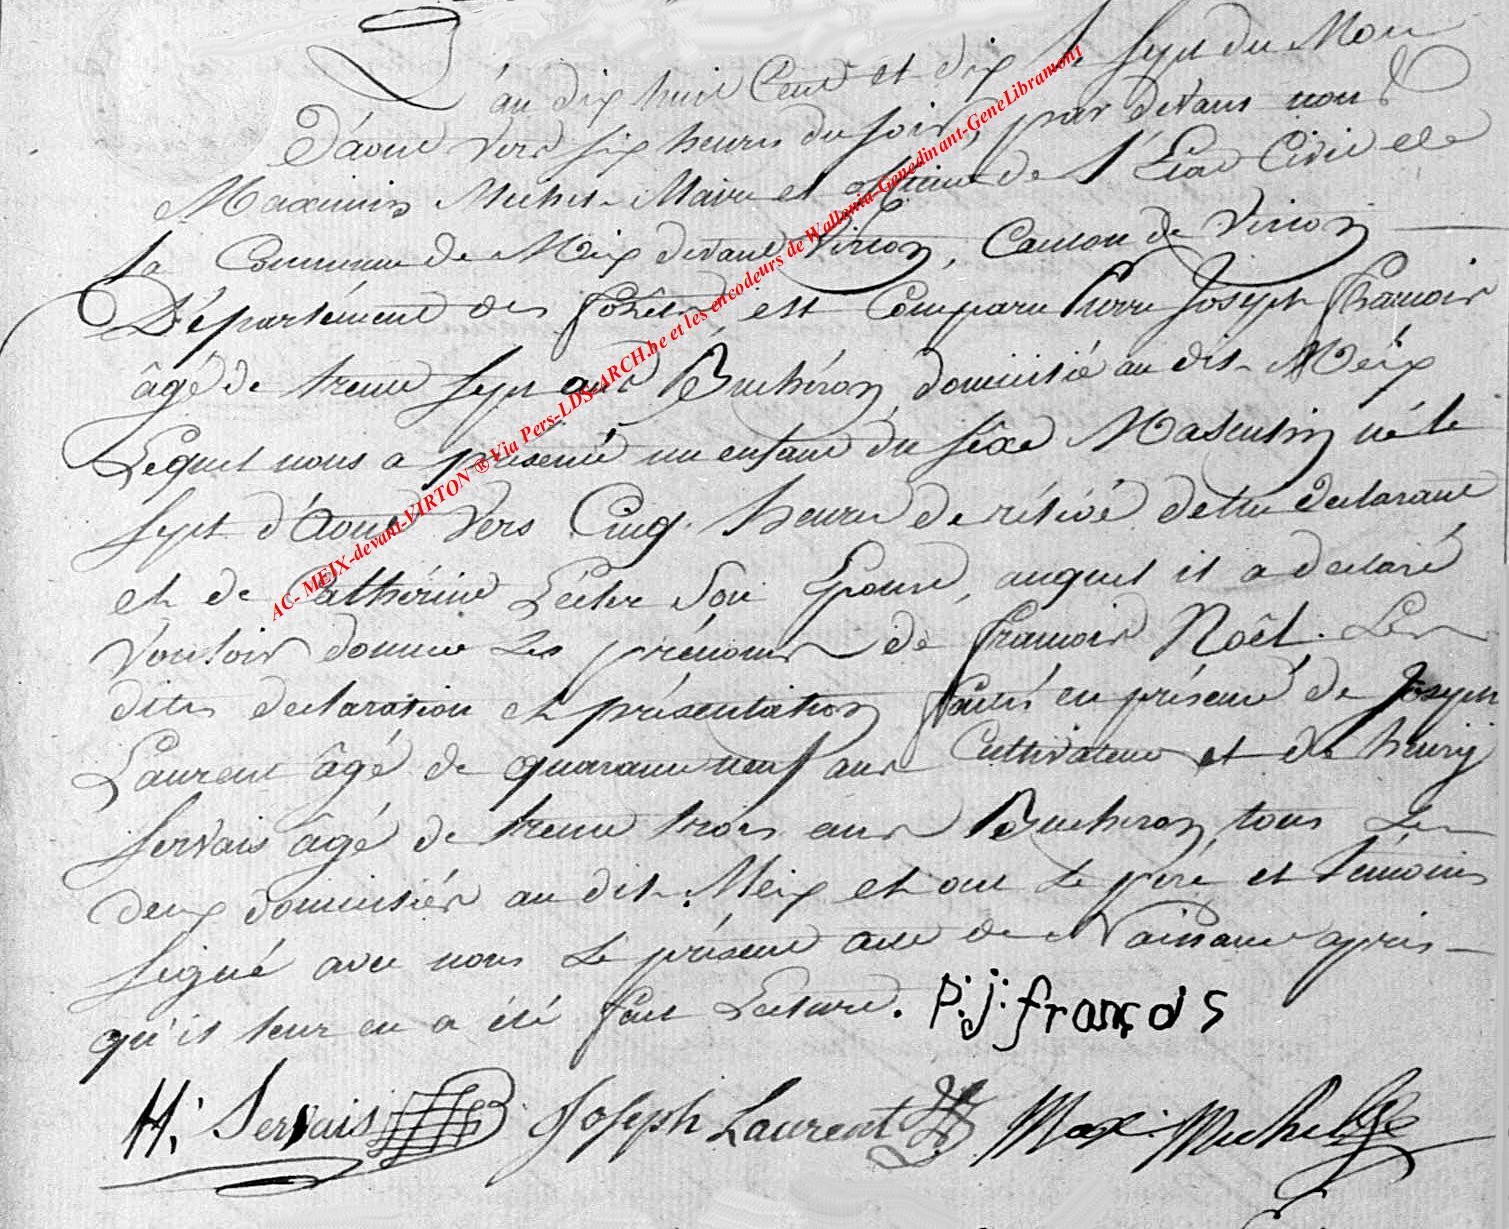 L'an dix huit Cent et dix le sept du Mois
D'aout vers six heures du soir, par devant nous
Maximin Michel Maire et officier de l'Etat Civil de
la Commune de Meix devant Virton, Canton de Virton
Département des forêts est Comparu Pierre Joseph François
âgé de trente sept ans Bucheron domicilié au dit Meix
Lequel nous a présenté un enfant du sêxe Masculin né le
sept d'Aout vers Cinq heures de rélévé de lui declarant
et de Cathérine Son Epouse, auquel il a declaré
vouloir donner les prénoms de françois Noêl. Les
dites declaration et présentation faites en présence de Joseph
Laurent âgé de quarante neuf ans Cultivateur et de henry
Servais âgé de trente trois ans Bucheron tous les
deux domiciliés au dit Meix et ont le père et témoins
signé avec nous le présent acte de Naissance après
qu'il leur en a été fait Lecture. p: j: françois
H: Servais Joseph Laurent Max: Michel
AC- MEIX-devant-VIRTON ® Via Pers-LDS-ARCH.be et les encodeurs de Wallonia-Genedinant-GeneLibramont